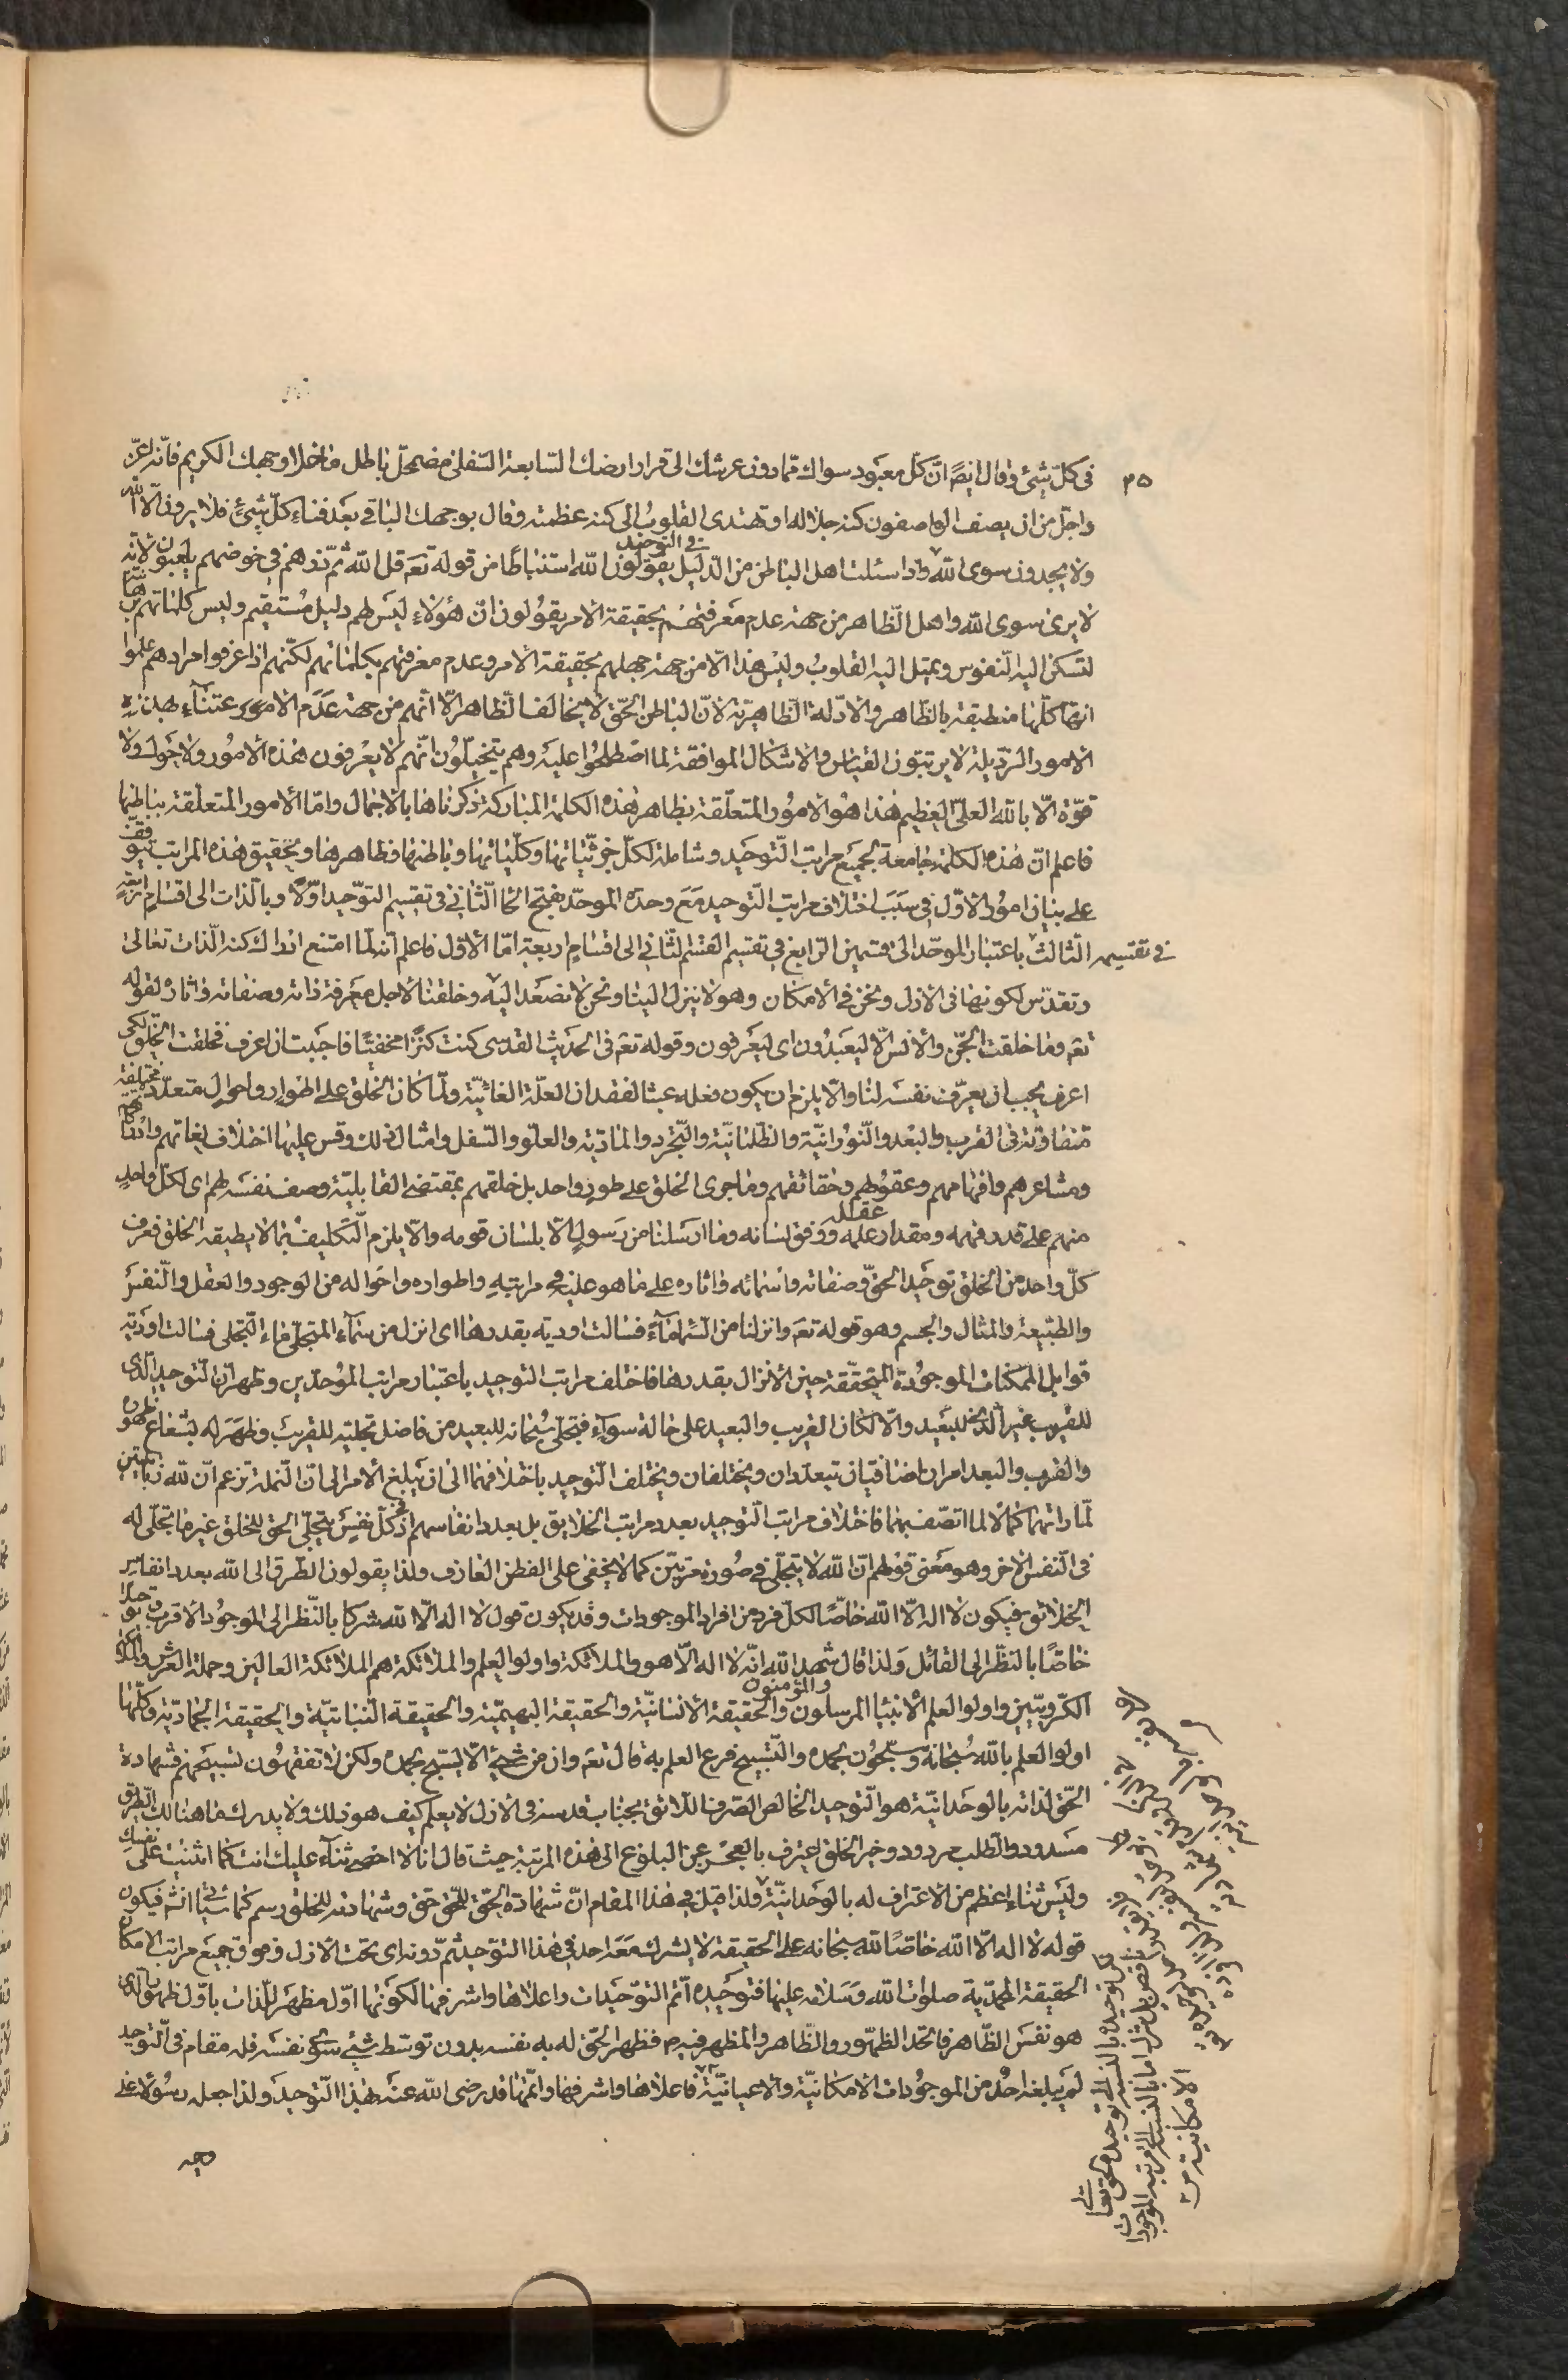 ٣٥
في كل شيئ وقال ايضًا انّ كل معبود سواك ممّا دون عرشك الى قرار ارضك السّابعة السّفلى مضمحلّ باطل ما خلا وجهك الكريم فانّه اعزّ
واجلّ من ان يصف الواصفون كنه جلاله او تهتدى القلوب الى كنه عظمته وقال بوجهك الباقي بعد فناء كلّ شيئ فلا يرون الّا الله
ولا يجدون سوى الله واذا سئلت اهل الباطن من الدّليل في التوحيد يقولون الله استنباطًا من قوله تعم قل الله ثمّ ذرهم في خوضهم يلعبون لانّه
لا يرى سوى الله واهل الظّاهر من جهة عدم معرفتهم بحقيقة الامر يقولون انّ هؤلاء ليس لهم دليل مستقيم وليس كلماتهم
لتسكن اليه النّفوس ويميل اليه القلوب وليس هذا الّا من جهة جهلهم بحقيقة الامر وعدم معرفتهم بكلماتهم لكنّهم اذا عرفوا مرادهم علموا
انّها كلّها منطبقة بالظّاهر والادلّة الظّاهريّة لانّ الباطن الحقّ لا يخالف الظّاهر الّا انّهم من جهة عدم الاعتناء بهذه
الامور الرّذيلة لا يرتبون القياس والاشكال الموافقة لما اصطلحوا عليه وهم يتخيّلون انّهم لا يعرفون هذه الامور ولا حول ولا
قوّة الّا بالله العليّ العظيم هذا هو الامور المتعلّقة بظاهر هذه الكلمة المباركة ذكرناها بالاجمال وامّا الامور المتعلّقة بباطنها
فاعلم انّ هذه الكلمة جامعة لجميع مراتب التّوحيد وشاملة لكلّ جزئيّاتها وكلّياتها وباطنها وظاهرها وتحقيق هذه المراتب يتوقّف
على بيان امور الاوّل في سبب اختلاف مراتب التّوحيد مع وحدة الموحّد بفتح الحا الثّاني في تقسيم التوّحيد اوّلًا وبالذات الى اقسام اربعة
الثّالث في تقسيمه باعتبار الموحّد الى قسمين الرّابع في تقسيم القسم الثّاني الى اقسام اربعة امّا الاوّل فاعلم انّه لمّا امتنع ادراك كنه الذّات تعالى
وتقدّس لكونها في الازل ونحن في الامكان وهو لا ينزل الينا ونحن لا نصعد اليه وخلقنا لاجل معرفة ذاته وصفاته واثاره لقوله
تعم وما خلقت الجنّ والانس الّا ليعبدون اى ليعرفون وقوله تعم في الحديث القدسى كنت كنزًا مخفيّا فاحببت ان اعرف فخلقت الخلق لكى
اعرف يجب ان يعرّف نفسه لنا والّا يلزم ان يكون فعله عبثا لفقدان العلّة الغائيّة ولمّا كان الخلق على اطوار واحوال متعدّدة مختلفة
متفاوتة في القرب والبعد والنّورانيّة والظّلمانيّة والتّجرد والماديّة والعلوّ والسّفل وامثال ذلك وقس عليها اختلاف لغاتهم
ومشاعرهم وافهامهم وعقولهم وحقائقهم وما جرى الخلق على طور واحد بل خلقهم بمقتضى القابليّة وصف نفسه لهم اى لكلّ واحد
منهم على قدر فهمه ومقدار علمه عقله ووفق لسانه وما ارسلنا من رسول الّا بلسان قومه والّا يلزم التّكليف بما لا يطيقه الخلق فعرف
كلّ واحد من الخلق توحيد الحقّ وصفاته واسمائه واثاره على ما هو عليه في مراتبه واطواره واحواله من الوجود والعقل والنّفس
والطّبيعة والمثال والجسم وهو قوله تعم وانزلنا من السّماء ماءً فسالت اودية بقدرها اى انزل من سماء المتجلّى ماء التّجلى فسالت اودية
قوابل الممكنات الموجودة المتحقّقة حين الانزال بقدرها فاختلف مراتب التوحيد باعتبار مراتب الموحّدين وظهر انّ التّوحيد الّذى
للقريب غير الّذى للبعيد والّا لكان القريب والبعيد على حالة سوآء فيتجلّى سبحانه للبعيد من فاضل تجليّه للقريب وظهر له بشعاع ظهوره
والقرب والبعد امران اضافيّان يتعدّدان ويختلفان ويختلف التّوحيد باختلافهما الى ان يبلغ الامر الى انّ النّملة تزعم انّ لله زبانيتين
لمّا راتهما كمالا لما اتصّف بهما فاختلاف مراتب التّوحيد بعدد مراتب الخلايق بل بعدد انفاسهم اذ في كلّ نفس يتجلّى الحق للخلق غير ما تجلّى له
فى النّفس الاخر وهو معنى قولهم انّ الله لا يتجلّى في صورة مرّتين كما لا يخفى على الفطن العارف ولذا يقولون الطّرق الى الله بعدد انفاس
الخلائق فيكون لا اله الّا الله خاصًّا لكلّ فرد من افراد الموجودات وقد يكون قول لا اله الّا الله شركا بالنّظر الى الموجود الاقرب وتوحيدا
خاصًّا بالنّظر الى القائل ولذا قال شهد الله انّه لا اله الّا هو والملائكة واولوا العلم والملائكة هم الملائكة العالين وحملة العرش
الكرّوبيّين واولوا العلم الانبياء المرسلون والمؤمنون والحقيقة الانسانيّة والحقيقة البهيميّة والحقيقة النّباتيّة والحقيقة الجماديّة وكلّها
اولوا العلم بالله سبحانه ويسبّحون بحمده والتّسبيح فرع العلم به قال تعم وان من شيئ الّا يسبّح بحمده ولكن لا تفقهون تسبيحهم فشهادة
الحّق لذاته بالوحدانيّة هو التّوحيد الخالص الصّرف اللّائق بجناب قدسه في الازل لا يعلم كيف هو ذلك ولا يدرك ما هنالك الطّرق
مسدود والطّلب مردود وخير الخلق اعترف بالعجز عن البلوغ الى هذه المرتبة حيث قال انا لا احصى ثناء عليك انت كما اثنيت على نفسك
وليس ثناء اعظم من الاعتراف له بالوحدانيّة ولذا قيل في هذا المقام انّ شهادة الحقّ للحّق حق وشهادته للخلق رسم كما سيأتى انشم فيكون
قوله لا اله الّا الله خاصًا لله سبحانه على الحقيقة لا يشرك معه احد في هذا التوحيد ثمّ دونه اى تحت الازل وفوق جميع مراتب الامكان
الحقيقة المحمّدية صلوات الله وسلامه عليها فتوحيده اتم التوّحيدات واعلاها واشرفها لكونها اوّل مظهر للّذات باوّل ظهور الّذى
هو نفس الظّاهر فاتحد الظهّور والظّاهر والمظهر فيه فظهر الحّق له به نفسه بدون توسّط شيئ سوى نفسه فله مقام في التّوحيد
لم يبلغه احد من الموجودات الامكانيّة والاعيانيّة فاعلاها واشرفها واتمّها قد رضى الله عنه بهذا التّوحيد ولذا جعله رسولا على